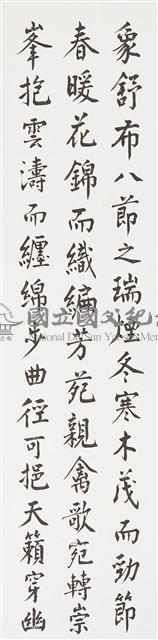 象舒布八節之瑞壇冬寒木茂而勁節
春暖花錦而織編芳苑親禽歌宛轉崇
峯抱雲濤而纏綿步曲徑可挹天籟穿幽
國立國父紀念館
National Dr. Sun Yat-sen Memorial